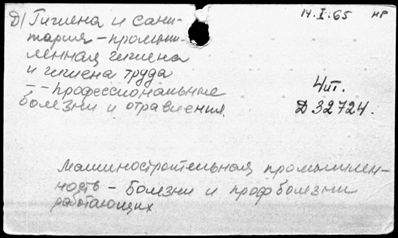 Д) Гигиена и сани-
тария - промыш-
ленная гигиена
и гигиена труда
- - профессиональные
болезни и отравления
14.I.65 НР
4 шт.
Д 32724.
Машиностроительная промышлен-
ность - Болезни и профболезни
работающих